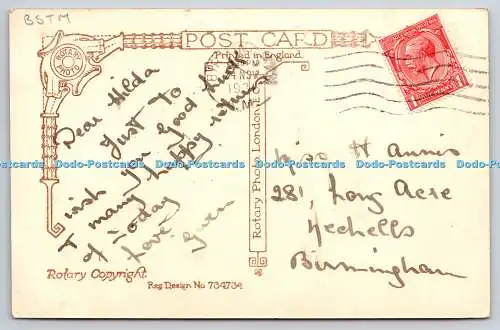 BSTM
POST CARD
Printed in England
ROTARY PHOTO
Dear Hilda
Just to
wish you Good luck
& many happy returns
of today
Love
Gwen
Rotary Photo, London, E.C.
Miss H Annis
281, Long Acre
Nechells
Birmingham
Rotary Copyright.
Reg Design No 734734
Dodo-Postcards Dodo-Postcards Dodo-Postcards Dodo-Postcards Dodo-Postcards